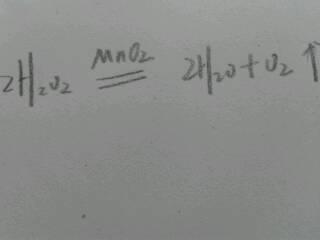 2H₂O₂ \xlongequal{MnO₂} 2H₂O + O₂ ↑